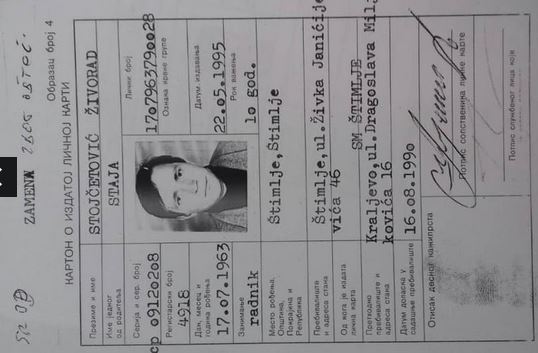 ЗАМЕНА ЗБОГ
Образац број 4
КАРТОН О ИЗДАТОЈ ЛИЧНОЈ КАРТИ
Презиме и име
STOJČETOVIĆ ŽIVORAD
Име једног од родитеља
STAJA
Серија и сер. број
ср 09120208
Лични број
1707963790028
Регистарски број
4918
Ознака крвне групе
Дан, месец и година рођења
17.07.1963
Датум издавања
22.05.1995
Занимање
radnik
Рок важења
1o god.
Место рођења,
Општина,
Покрајина и
Република
Štimlje,Štimlje
Пребивалиште и адреса стана
Štimlje,ul.Živka Janićije
vića 46
Од кога је издата лична карта
SM ŠTIMLJE
Претходно пребивалиште и адреса стана
Kraljevo,ul.Dragoslava Milj
kovića 16
Датум доласка у садашње пребивалиште
16.08.1990
Отисак десног кажипрста
Потпис сопственика личне карте
Потпис службеног лица које